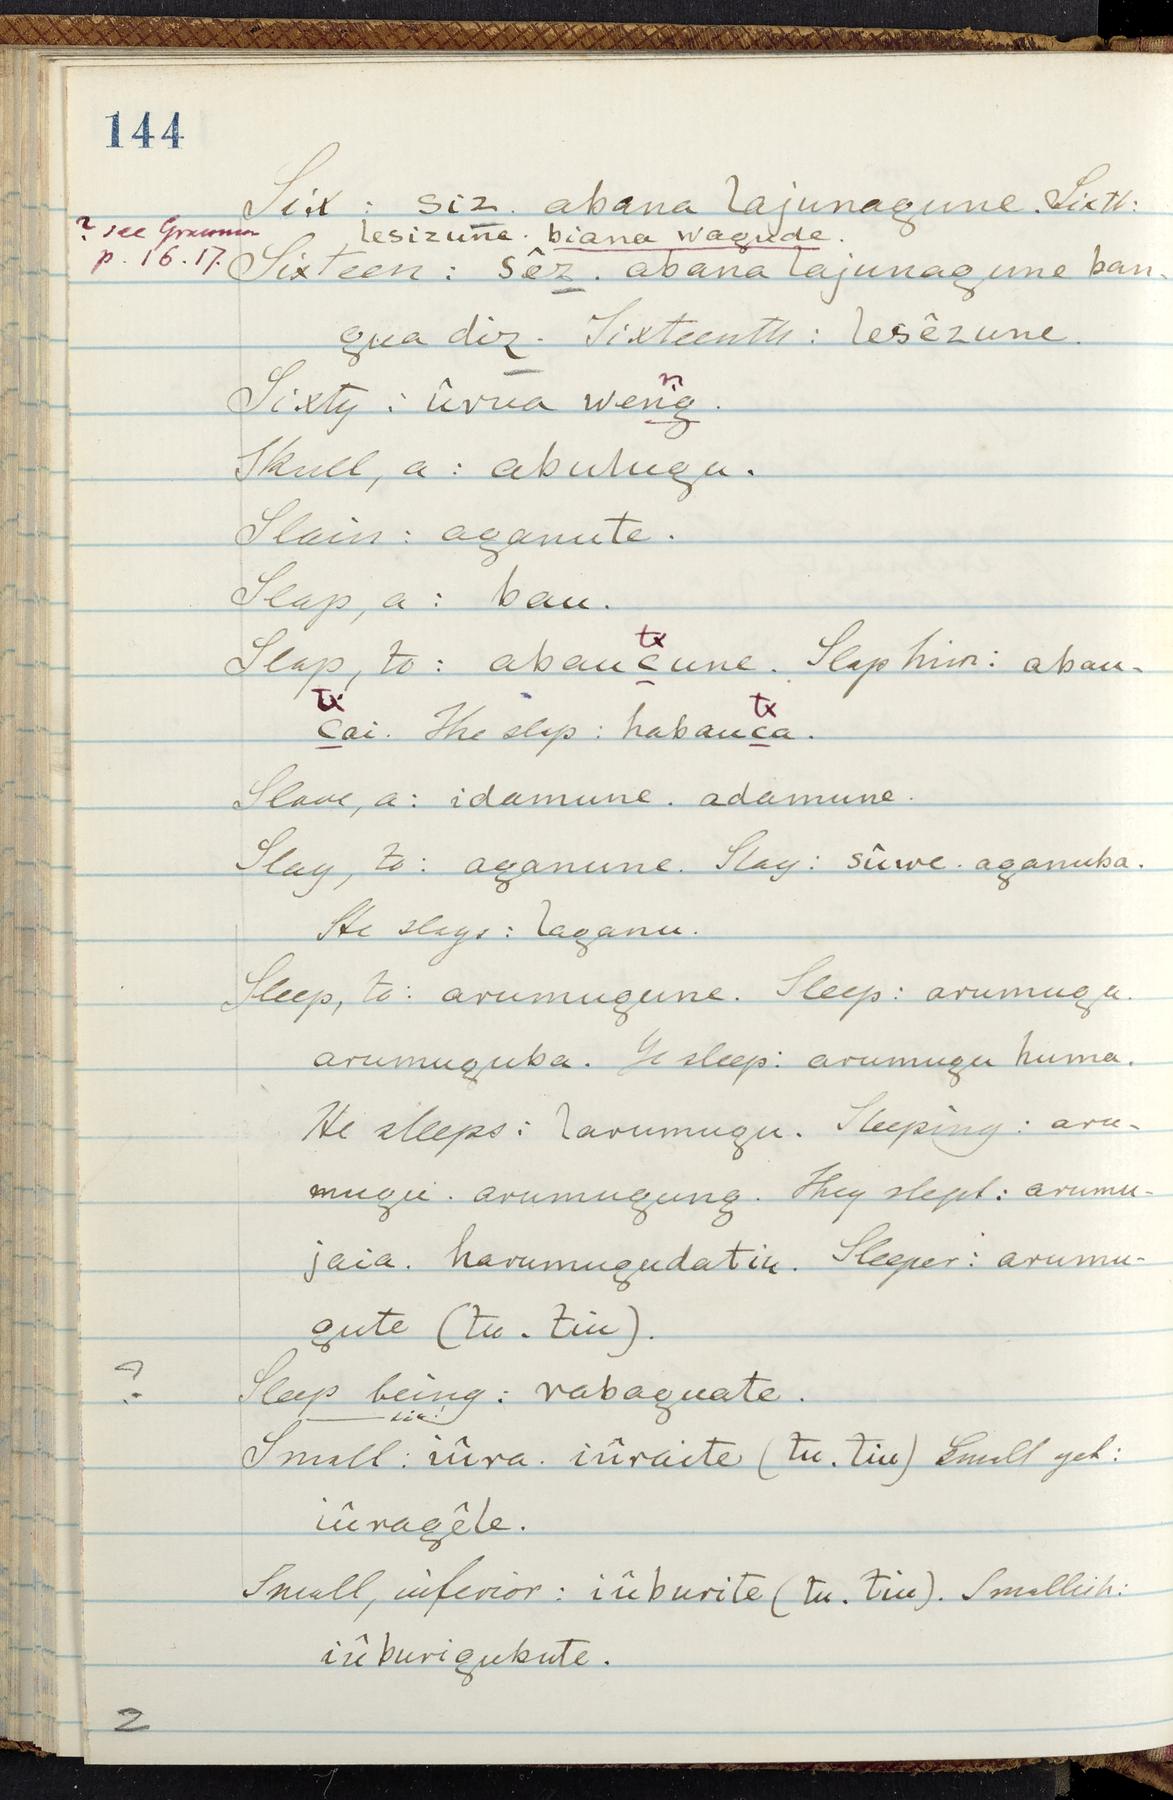 144
Six : siz. abana lajunagune. Sixth:
? see Grammar
lesizune. biana wagude.
p. 16.17.
Sixteen : sêz. abana lajunagune ban-
gua diz. Sixteenth : lesêzune.
n
Sixty : ûrua weng.
Skull, a : abulugu.
Slain : aganute.
Slap, a : bau.
tx
Slap, to : abaucune. Slap him : abau-
tx tx
cai. He slap : habauca.
Slave, a : idamune. adamune.
Slay, to : aganune. Slay : sûwe. aganuba.
He slays : laganu.
Sleep, to : arumugune. Sleep : arumugu.
arumuguba. Ye sleep : arumugu huma.
He sleeps : larumugu. Sleeping : aru-
mugu. arumugung. They slept : arumu-
jaia. harumugudatiu. Sleeper : arumu-
gute (tu. tiu).
? Sleep being : rabaguate.
sic!
Small : iûra. iûraite (tu. tiu) Small get :
iûragêle.
Small, inferior : iûburite (tu. tiu). Smallish :
iûburigukute.
2